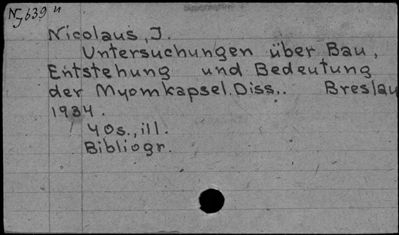 N 5639 u
Nicolaus, J.
Untersuchungen über Bau,
Entstehung und Bedeutung
der Myomkapsel. Diss.. Breslau
1934.
40s., ill.
Bibliogr.